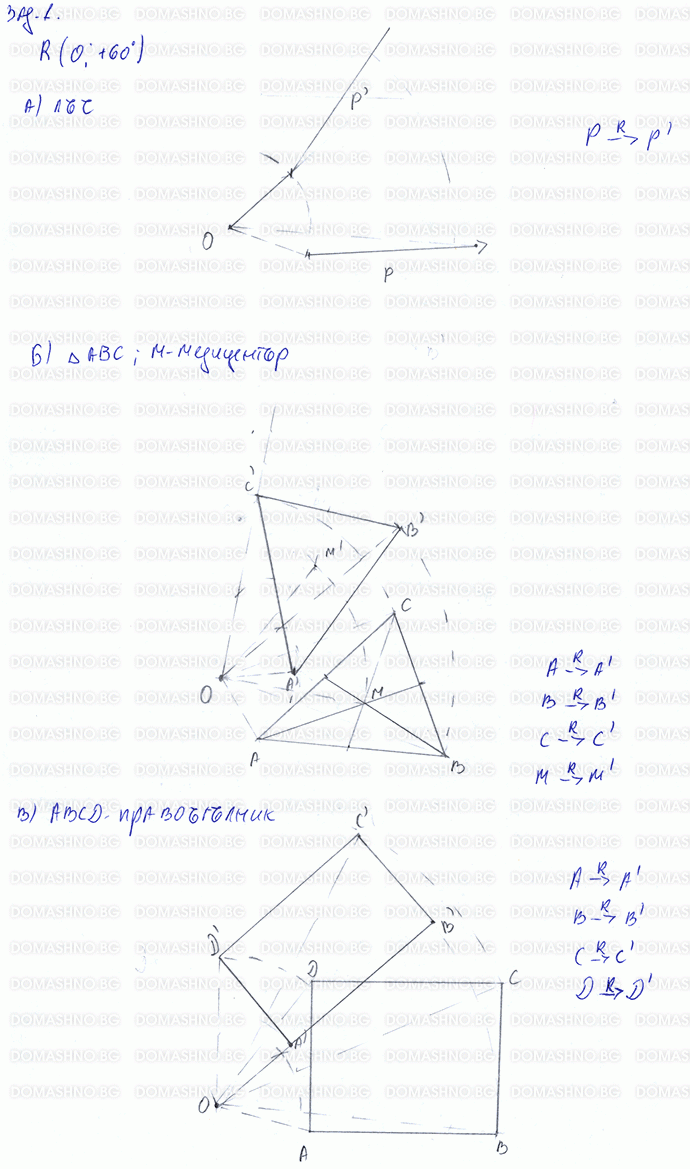 Зад. 1.
R (O; +60°)
А) лъч
P'
P R→ P'
O
P
Б) △ ABC; M-медицентър
C'
B'
M'
C
O
A'
M
A
B
A R→ A'
B R→ B'
C R→ C'
M R→ M'
В) ABCD - прАвоъгълник
C'
B'
D'
D
C
A'
O
A
B
A R→ A'
B R→ B'
C R→ C'
D R→ D'
DOMASHNO.BG